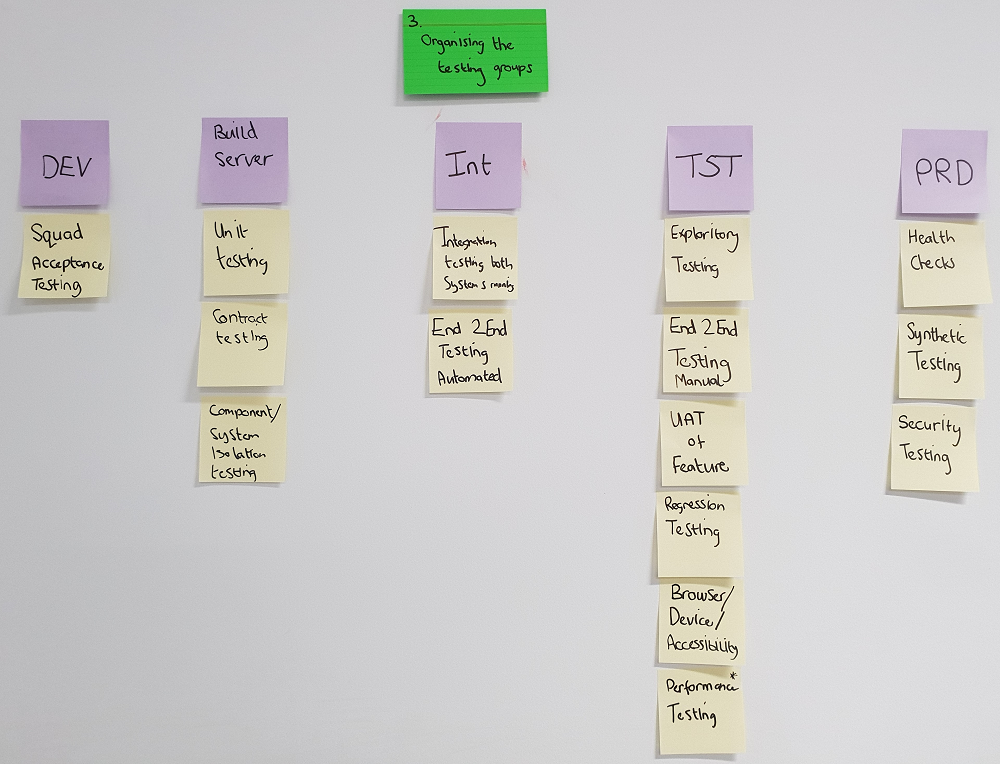 3.
Organising the
testing groups
DEV
Squad
Acceptance
Testing
Build
Server
Unit
testing
Contract
testing
Component/
System
Isolation
testing
Int
Integration
testing both
Systems
End 2 End
Testing
Automated
TST
Exploritory
Testing
End 2 End
Testing
Manual
UAT
of
Feature
Regression
Testing
Browser/
Device/
Accessibility
Performance*
Testing
PRD
Health
Checks
Synthetic
Testing
Security
Testing